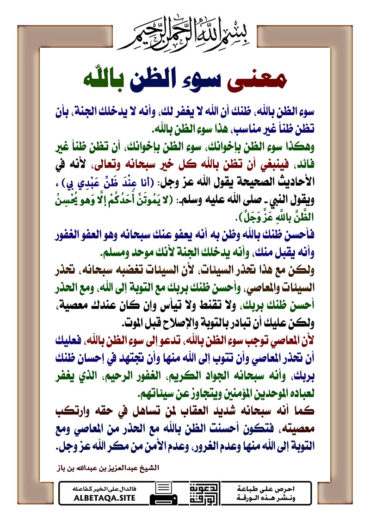 بسم الله الرحمن الرحيم
معنى سوء الظن بالله
سوء الظن بالله، ظنك أن الله لا يغفر لك، وأنه لا يدخلك الجنة، بأن
تظن ظناً غير مناسب، هذا سوء الظن بالله.
وهكذا سوء الظن بإخوانك، سوء الظن بإخوانك، أن تظن ظناً غير
فائد، فينبغي أن تظن بالله كل خير سبحانه وتعالى، لأنه في
الأحاديث الصحيحة يقول الله عز وجل: (أنا عِنْدَ ظَنِّ عَبْدِي بي) ،
ويقول النبي ـ صلى الله عليه وسلم ـ: (لا يَمُوتَنَّ أَحَدُكُمْ إلَّا وَهو يُحْسِنُ
الظَّنَّ باللَّهِ عَزَّ وَجَلَّ).
فأحسن ظنك بالله وظن به أنه يعفو عنك سبحانه وهو العفو الغفور
وأنه يقبل منك، وأنه يدخلك الجنة لأنك موحد ومسلم.
ولكن مع هذا تحذر السيئات، لأن السيئات تغضبه سبحانه، تحذر
السيئات والمعاصي، وأحسن ظنك بربك مع التوبة إلى الله، ومع الحذر
أحسن ظنك بربك، ولا تقنط ولا تيأس وإن كان عندك معصية،
ولكن عليك أن تبادر بالتوبة والإصلاح قبل الموت.
لأن المعاصي توجب سوء الظن بالله، تدعو إلى سوء الظن بالله، فعليك
أن تحذر المعاصي وأن تتوب إلى الله منها وأن تجتهد في إحسان ظنك
بربك، وأنه سبحانه الجواد الكريم، الغفور الرحيم، الذي يغفر
لعباده الموحدين المؤمنين ويتجاوز عن سيئاتهم.
كما أنه سبحانه شديد العقاب لمن تساهل في حقه وارتكب
معصيته، فتكون أحسنت الظن بالله مع الحذر من المعاصي ومع
التوبة إلى الله منها وعدم الغرور، وعدم الأمن من مكر الله عز وجل.
الشيخ عبدالعزيز بن عبدالله بن باز
احرص على طباعة
ونشر هذه الورقة
الدعوية
الورقة
فالدال على الخير كفاعله
ALBETAQA.SITE